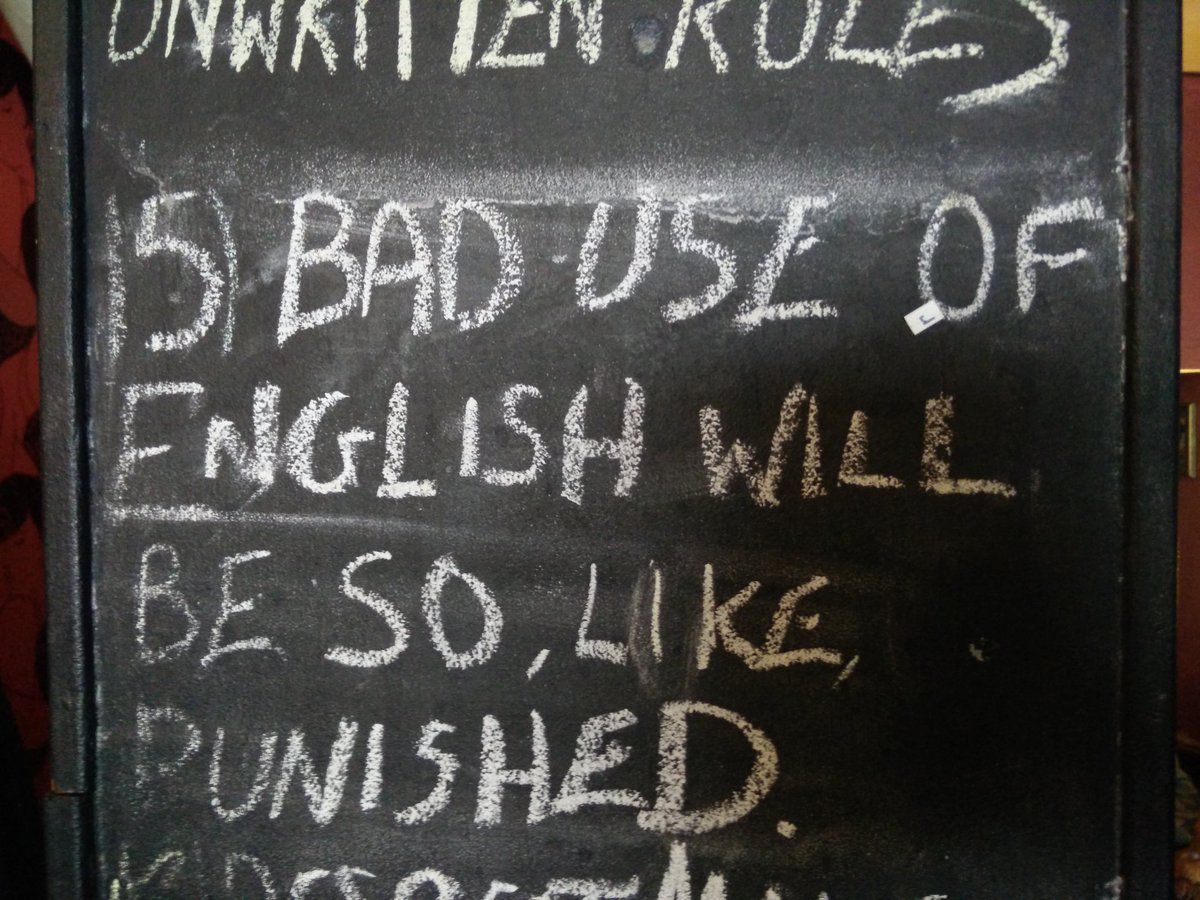 UNWRITTEN RULES
(5) BAD USE OF
ENGLISH WILL
BE SO, LIKE,
PUNISHED.